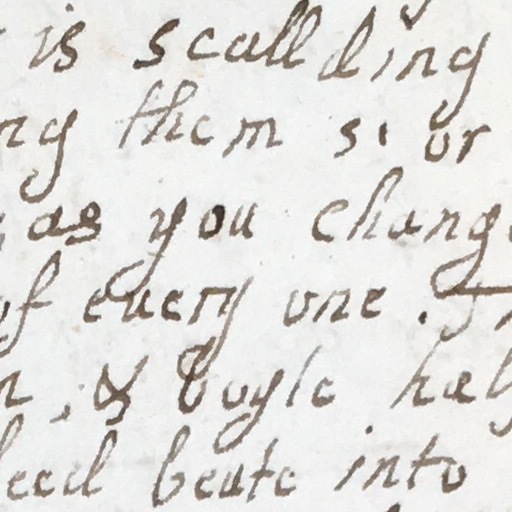 is scallding
ng them s. or
as you chang
of euery one. T
n, & boyle hal
eed beate into